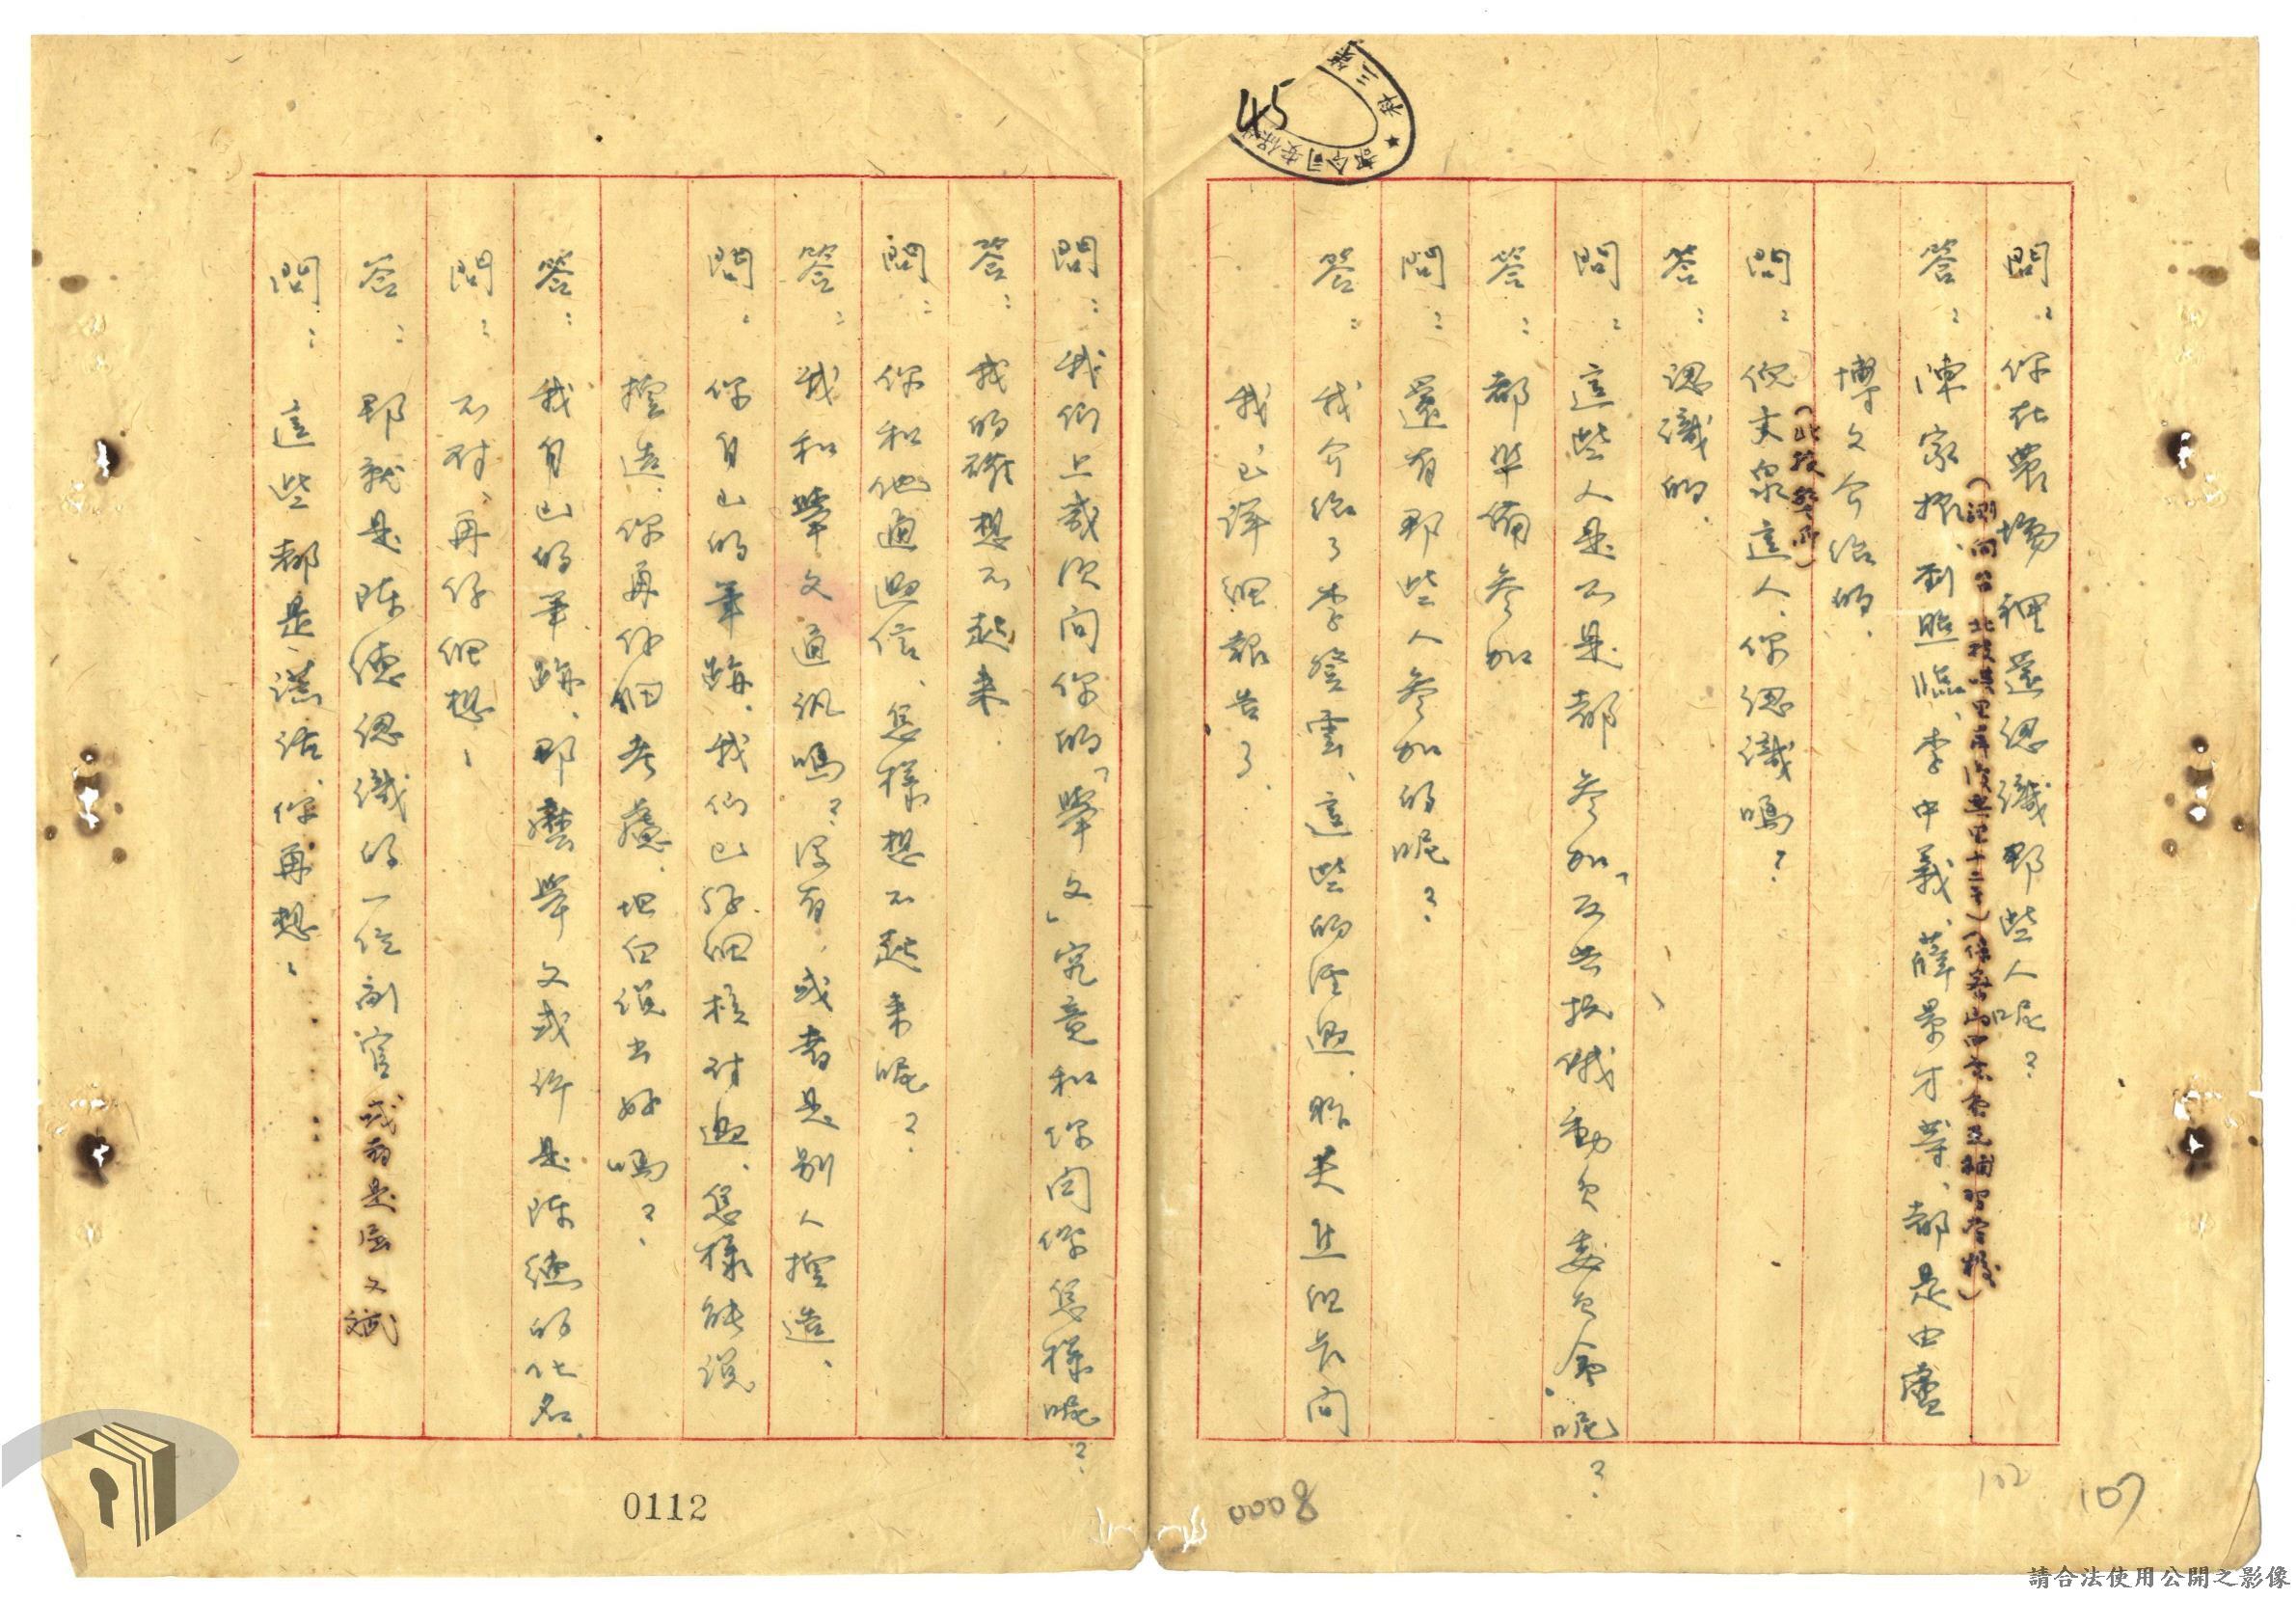 問：你在農場裡還認識那些人呢？
答：陳家振、劉照臨、李中義、薛景才等、都是由盧
博文介紹的.
問：倪文泉這人.你認識嗎？
(北投
答：認識的.
問：這些人是不是都參加「反共抗俄動員委員會」呢？
答：都準備參加
問：還有那些人參加的呢？
答：我介紹了李登雲、這些的經過.昨天
我、已詳細報告了.
問：我們上幾次問你的「學文」究竟和你同學怎樣呢？
答：我的確想不起來.
問：你和他通過信、怎樣想不起來呢？
答：我和學文通訊嗎？沒有，或者是別人捏造、
問：你自己的筆跡、我們已仔細核對過、怎樣能說
捏造、你再仔細考慮、坦白說出好嗎？
答：我自己的筆跡、那麼學文或許是陳德的化名.
問：不對、再仔細想、
答：那就是陳德認識的一位副官或者是 文斌
問：這些都是謊話、你再想、
0112
8000
102
107
45
第三科
保安司令部
請合法使用公開之影像